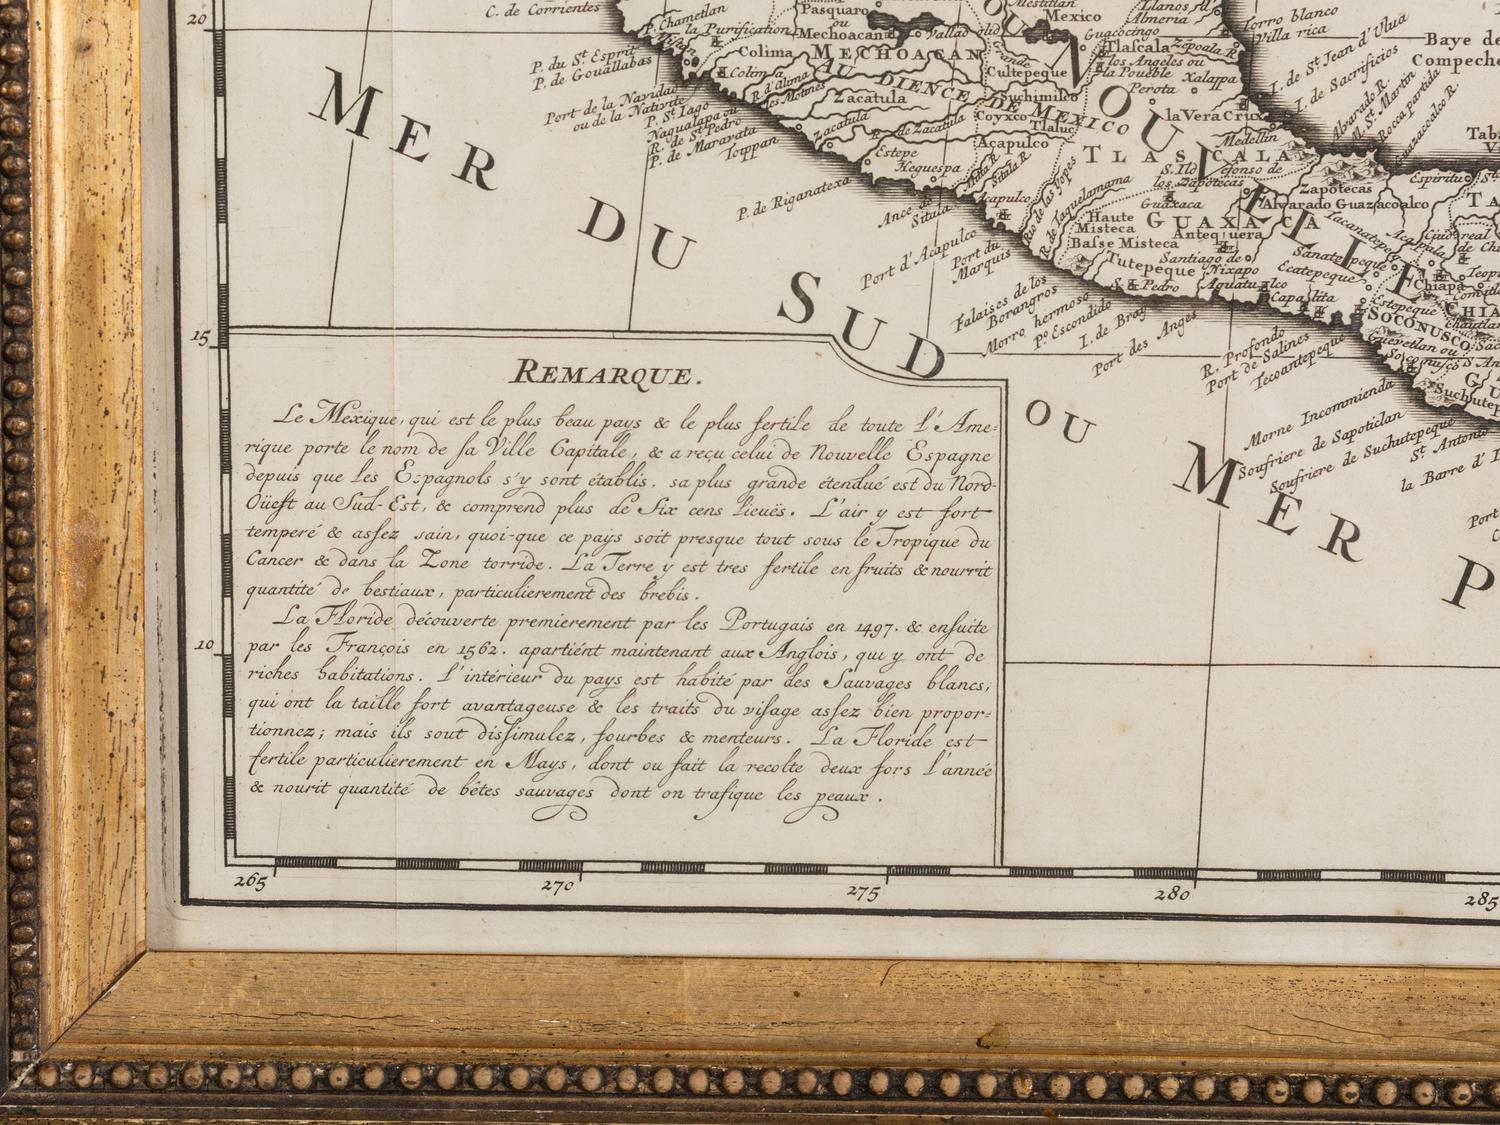 20
C. de Corrientes
P. Chametlan
la Purification
Pasquaro
ou
Mechoacan
Mexico
Guacocingo
Almeria
Torro blanco
Villa rica
I. de St. Jean d'Ulua
I. de Sacrificios
Baye de
Compeche
P. du St. Esprit
P. de Gouallabas
Colima
MECHOACAN
Tlascala
Zepoala R.
los Angeles ou
la Pouëble
Xalappa
Perota
Cultepeque
Suchimilco
AUDIENCE DE MEXICO
R. d'alima
les Motines
Zacatula
Coyxco
Tlaluc
la Vera Crux
Alvarado R.
M. St. Martin
Rocca partida
Guazacoalco R.
Port de la Navidad
ou de la Nativité
P. St. Iago
Nagualapa ou
R. de St. Pedro
P. de Maravata
Toippan
Zacatula
R. de Zacatula
Acapulco
Medellin
TLASCALA
S. Ilefonso de
los Zapotecas
Zapotecas
Espiritu
Estepe
Heguespa
P. de Riganatexa
Ance de
Situla
Acapulco
Rio de los Yopes
R. de Taquelamama
Guaxaca
Alvarado Guazacoalco
Haute
Misteca
GUAXACA
Antequera
Basse Misteca
Tutepeque
Santiago de
Nixapo
Ecatepeque
Chiapa
Port d'Acapulco
Port du
Marquis
S. Pedro
Aguatulco
Capalita
Estepeque
SOCONUSCO
Guevetlan ou
Soconusco
Falaises de los
Borangros
Morro hermoso
Po. Escondido
I. de Bray
Port des Anges
R. Profondo
Port de Salines
Tecoantepeque
OU NOUVELLE
MER DU SUD
OU MER P
Morne Incommienda
Soufriere de Sapoticlan
Soufriere de Suchutepeque
St. Antonio
la Barre d'
Port
15
REMARQUE.
Le Mexique, qui est le plus beau pays & le plus fertile de toute l'Ame=
rique porte le nom de sa Ville Capitale, & a reçu celui de Nouvelle Espagne
depuis que les Espagnols s'y sont établis. sa plus grande étendué est du Nord-
Oüest au Sud-Est, & comprend plus de Six cens lieuës. L'air y est fort
temperé & assez sain, quoi-que ce pays soit presque tout sous le Tropique du
Cancer & dans la Zone torride. La Terre y est tres fertile en fruits & nourrit
quantité de bestiaux, particulierement des brebis.
La Floride découverte premierement par les Portugais en 1497. & ensuite
par les François en 1562. apartiént maintenant aux Anglois, qui y ont de
riches habitations. L'intérieur du pays est habité par des Sauvages blancs,
qui ont la taille fort avantageuse & les traits du visage assez bien propor=
tionnez; mais ils sout dissimulez, fourbes & menteurs. La Floride est
fertile particulierement en Mays, dont ou fait la recolte deux fors l'année
& nourit quantité de bêtes sauvages dont on trafique les peaux.
10
265
270
275
280
285